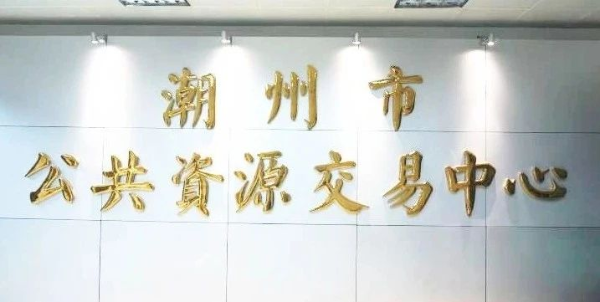 潮州市
公共資源交易中心